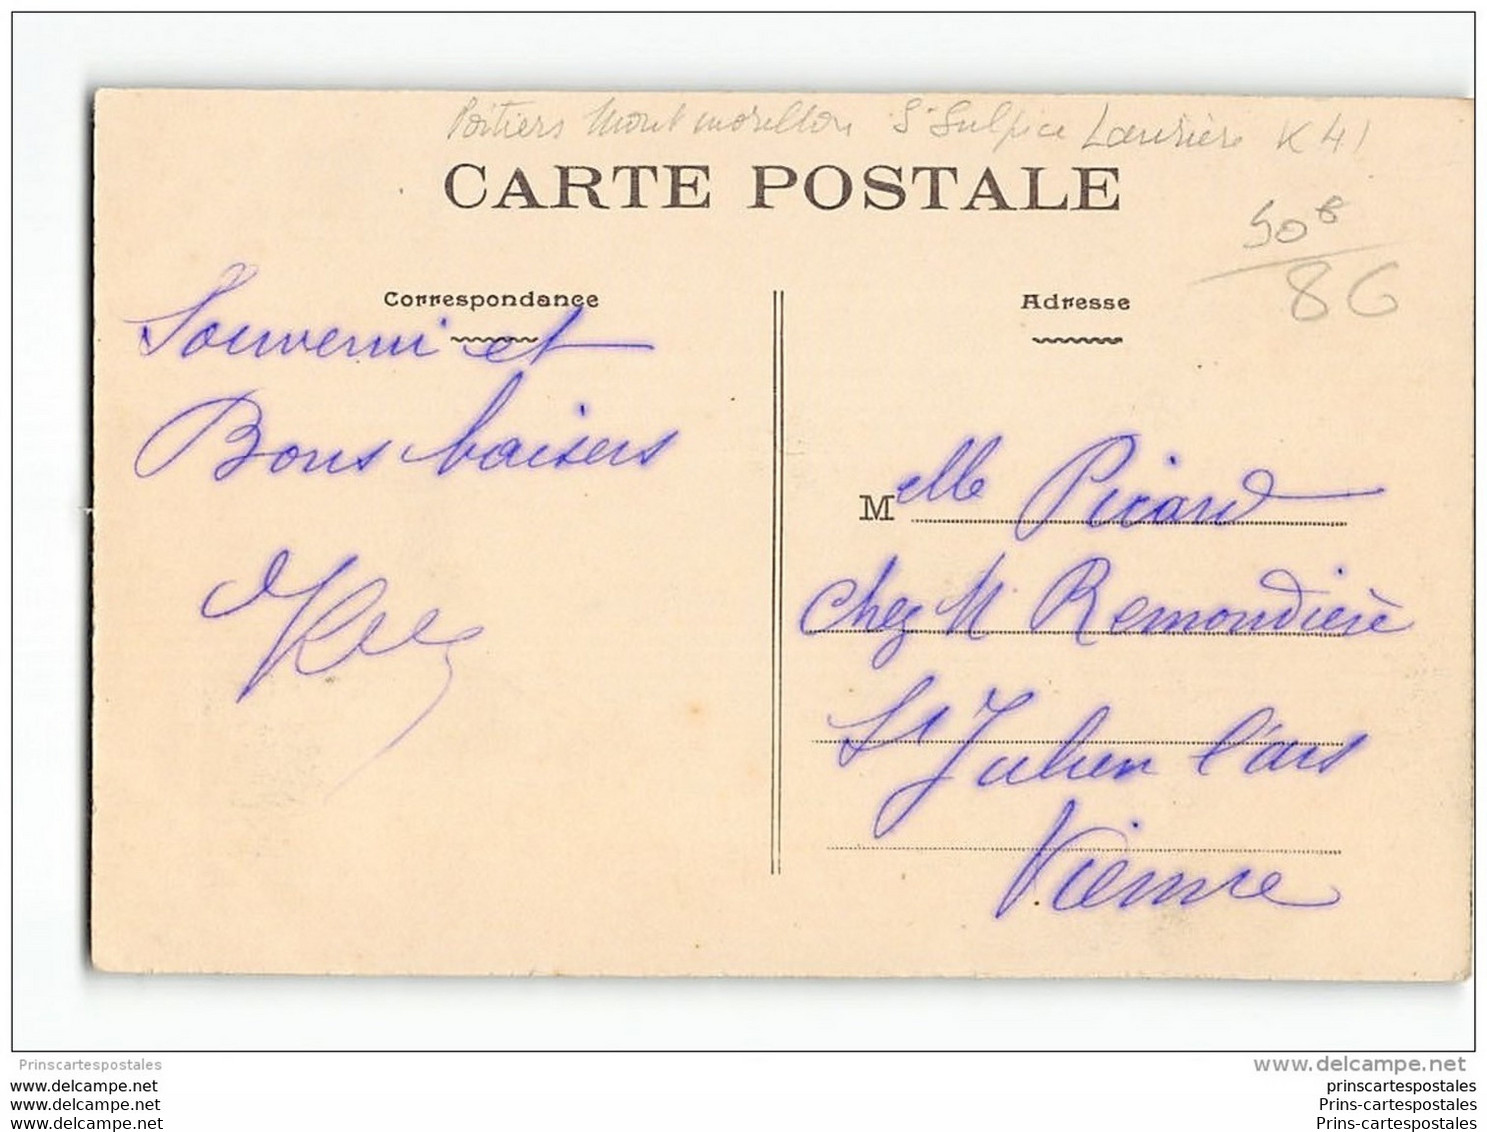 Poitiers Montmorillon St Sulpice Laurière K 41
CARTE POSTALE
50 B
86
Correspondance
Adresse
Souvenir et
Bons baisers
Melle Picard
Chez M. Remondière
St Julien l'ars
Vienne
Prinscartespostales
www.delcampe.net
www.delcampe.net
www.delcampe.net
www.delcampe.net
prinscartespostales
Prins-cartespostales
Prins-cartespostales